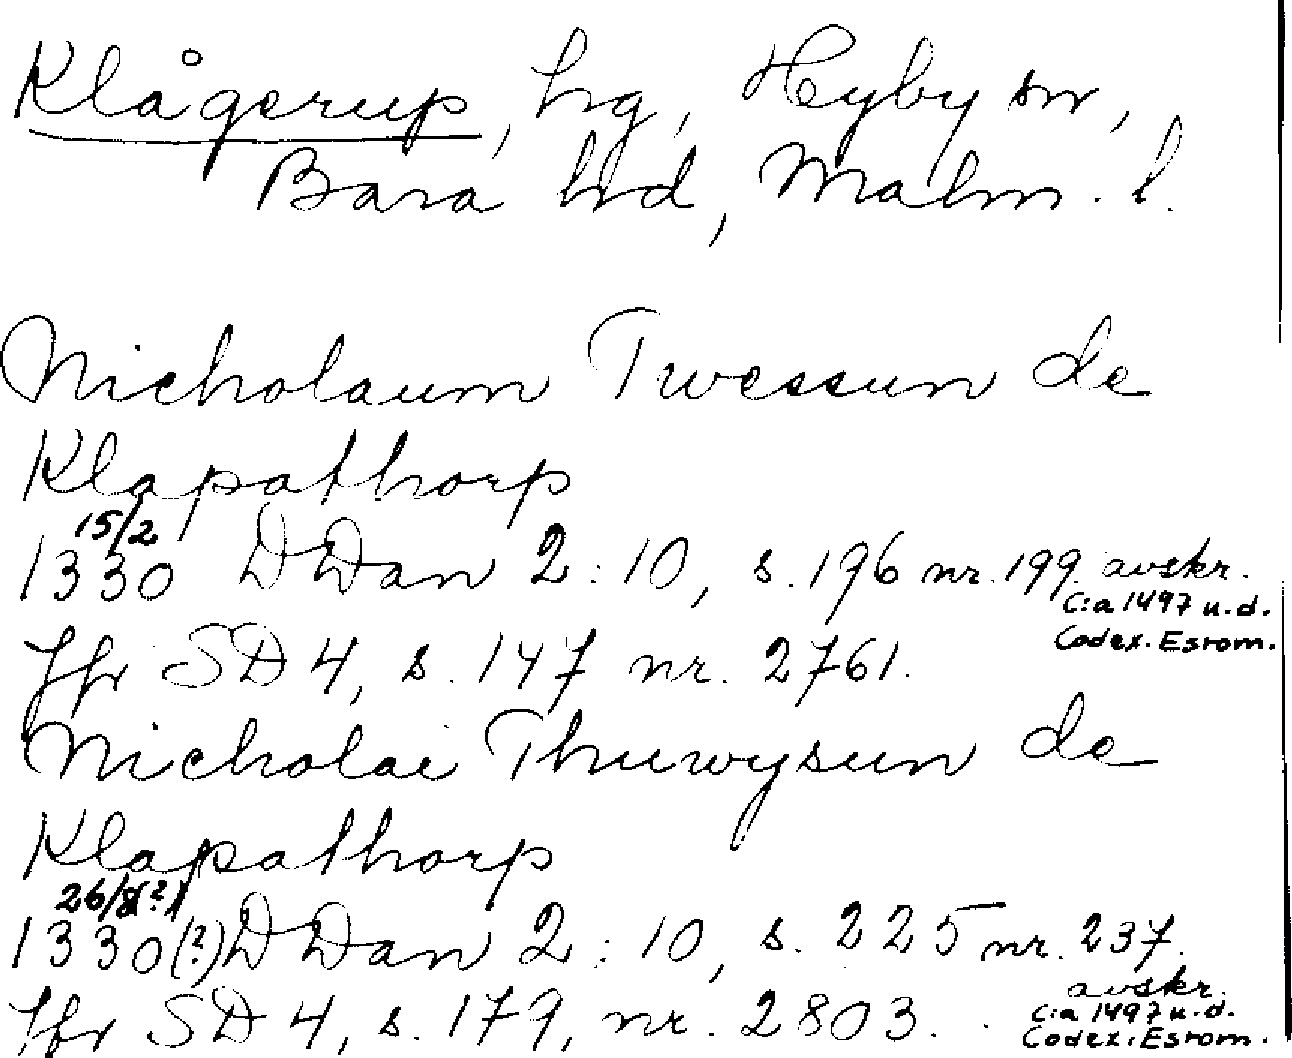 Klågerup, hg, Hyby sn,
Bara hd, Malm. l.
Nicholaum Twessun de
Klapathorp
15/2
1330 DDan 2:10, s. 196 nr. 199. avskr.
c:a 1497 u.d.
Codex. Esrom.
Jfr SD 4, s. 147 nr. 2761.
Nicholai Thuwysun de
Klapathorp
26/8(?)
1330(?) DDan 2:10, s. 225 nr. 237.
avskr.
Jfr SD 4, s. 179, nr. 2803.
c:a 1497 u.d.
Codex. Esrom.